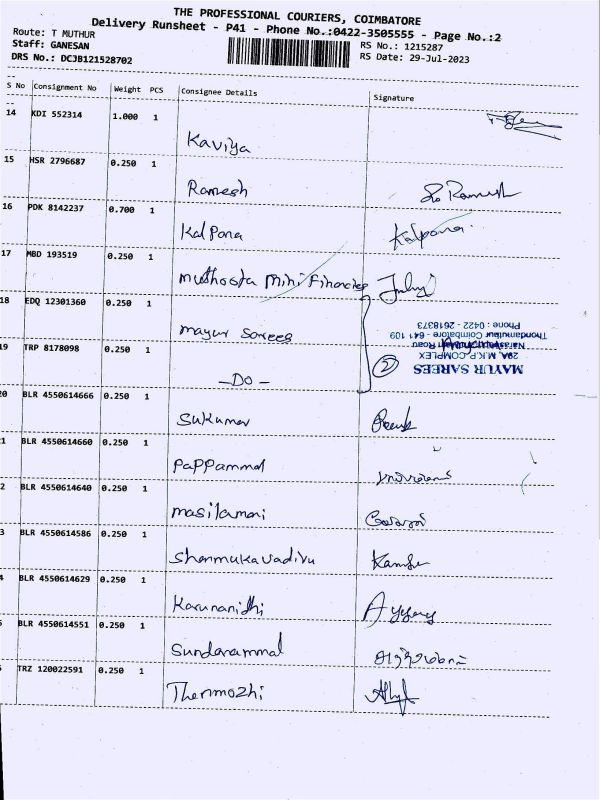 THE PROFESSIONAL COURIERS, COIMBATORE
Delivery Runsheet - P41 - Phone No.:0422-3505555 - Page No.:2
Route: T MUTHUR
Staff: GANESAN
RS No.: 1215287
DRS No.: DCJB121528702
RS Date: 29-Jul-2023
S No Consignment No Weight PCS Consignee Details Signature
14 KDI 552314 1.000 1
Kaviya
15 HSR 2796687 0.250 1
Ramesh Ramesh
16 PDK 8142237 0.700 1
Kalpana Kalpana
17 MBD 193519 0.250 1
Muthoota Mini Financies
18 EDQ 12301360 0.250 1
Mayur Sarees
19 TRP 8178098 0.250 1
-DO-
2
MAYUR SAREES
29A, M.K.P. COMPLEX
Road
Thondamuthur Coimbatore - 641 109
Phone : 0422 - 2618373
20 BLR 4550614666 0.250 1
Sukumar
1 BLR 4550614660 0.250 1
Pappammal
2 BLR 4550614640 0.250 1
Masilamani
3 BLR 4550614586 0.250 1
Shanmukavadivu
4 BLR 4550614629 0.250 1
Karunanidhi
5 BLR 4550614551 0.250 1
Sundarammal
TRZ 120022591 0.250 1
Thenmozhi